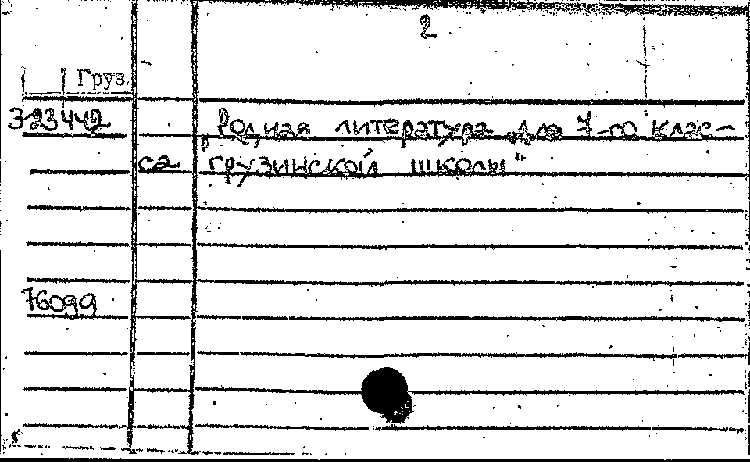 2
Груз.
3-23442 „Родная литература для 7-го клас-
са грузинской школы"
76099